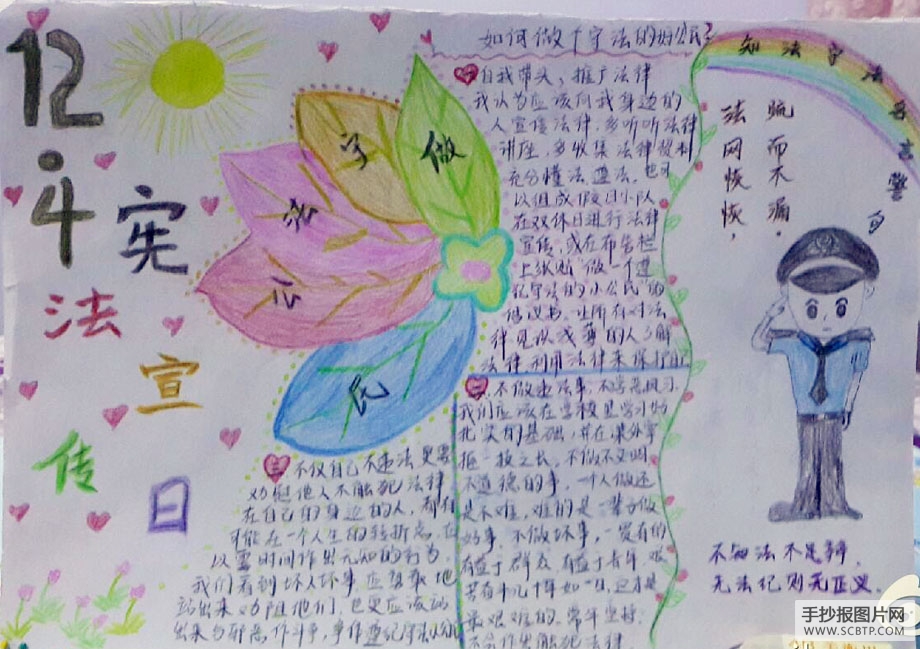 12.4
宪
法
宣
传
日
做
守
法
公
民
如何做个守法的好公民?
知法守法名言警句
疏而不漏.
法网恢恢,
自我带头、推广法律
我认为应该向我身边的
人宣传法律,多听听法律
讲座,多收集法律资料
充分懂法遵法,也可
以组成假日小队
在双休日进行法律
宣传,或在布告栏
上张贴"做一个遵
纪守法的小公民"的
倡议书,让所有对法
律见识浅薄的人了解
法律,利用法律来保护自己
二 不做违法事,不学恶风习
我们应该在学校里学习好
扎实的基础,并在课外掌
握一技之长,不做不文明
不道德的事,一个人做还
是不难,难的是一辈子做
好事,不做坏事,一贯有的
有益于群众,有益于青年,艰
苦奋斗几十年如一日,这才是
最艰难的,常年坚持
不会作出触犯法律
三 不仅自己不违法更要
劝慰他人不触犯法律
在自己的身边的人,都有
可能在一个人生的转折点,在
以霎时间作出无知的行为.
我们看到坏人坏事,应勇敢地
站出来劝阻他们,也更应该站
出来与邪恶作斗争,争作遵纪守法小公民
不知法不是辩,
无法纪则无正义.
手抄报图片网
WWW.SCBTP.COM